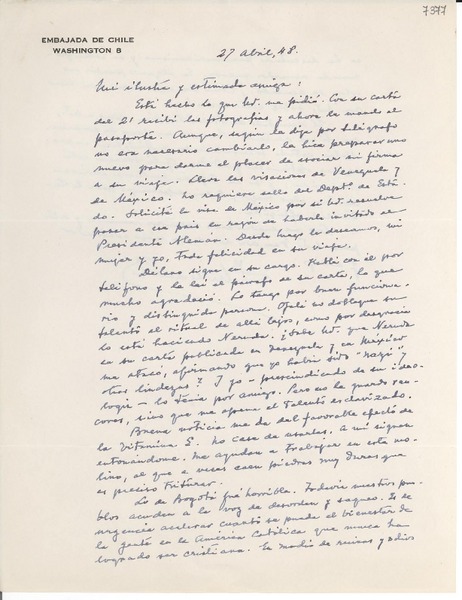 7397
EMBAJADA DE CHILE
WASHINGTON 8
27 abril, 48.
Mi ilustre y estimada amiga:
Está hecho lo que Ud. me pidió. Con su carta
del 21 recibí las fotografías y ahora le mando el
pasaporte. Aunque, según le dije por telégrafo
no era necesario cambiarlo, le hice preparar uno
nuevo para darme el placer de asociar mi firma
a su viaje. Lleva las visaciones de Venezuela y
de México. No requiere sello del Deptº de Esta-
do. Solicité la visa de México por si Ud. resuelve
pasar a ese país en razón de haberla invitado el
Presidente Alemán. Desde luego le deseamos, mi
mujer y yo, toda felicidad en su viaje.
Délano sigue en su cargo. Hablé con él por
teléfono y le leí el párrafo de su carta, lo que
mucho agradeció. Lo tengo por buen funciona-
rio y distinguida persona. Ojalá no doblegue su
talento al ritual de allá lejos, como por desgracia
lo está haciendo Neruda. ¿Sabe Ud. que Neruda
en su carta publicada en Venezuela y en México
me atacó, afirmando que yo había sido "nazi" y
otras lindezas? Y yo - prescindiendo de su ideo-
logía - lo tenía por amigo. Pero no le guardo ren-
cores, sino que me apena el talento esclavizado.
Buena noticia me da del favorable efecto de
la Vitamina E. No cese de usarla. A mí siguen
entonándome. Me ayudan a trabajar en este mo-
lino, al que a veces caen piedras muy duras que
es preciso triturar.
Lo de Bogotá fué horrible. Todavía nuestros pue-
blos acuden a la voz de desorden y saqueo. Es de
urgencia acelerar cuanto se pueda el bienestar de
la gente en la América Católica que nunca ha
logrado ser cristiana. En medio de ruinas y odios